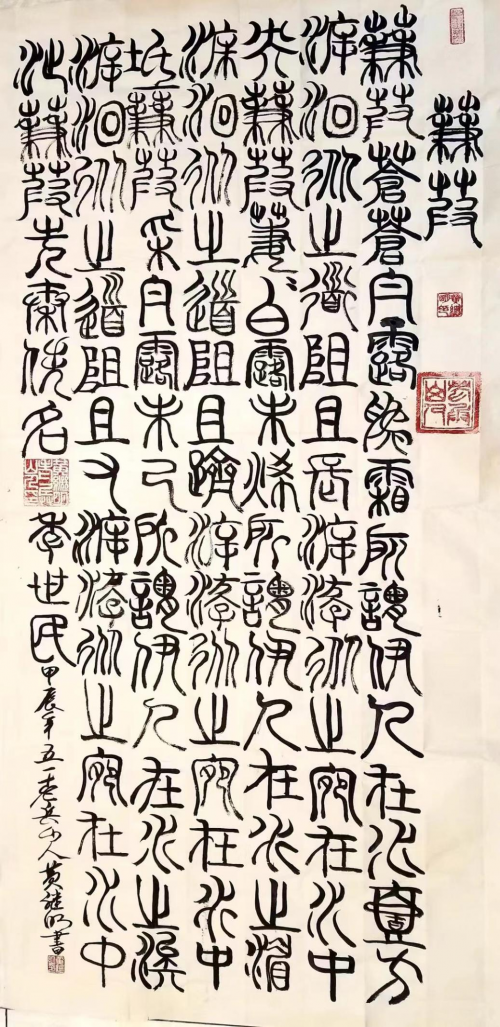 蒹葭
蒹葭蒼蒼白露為霜所謂伊人在水壹方
溯洄從之道阻且長溯游從之宛在水中
央蒹葭萋〻白露未晞所謂伊人在水之湄
溯洄從之道阻且躋溯游從之宛在水中
坻蒹葭采白露未已所謂伊人在水之涘
溯洄從之道阻且右溯游從之宛在水中
沚蒹葭先秦佚名 世民甲辰年五一老兵人黄继明書